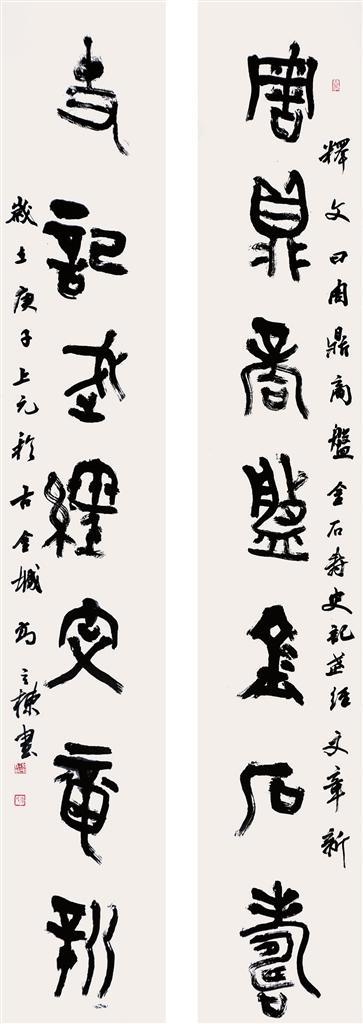 釋文曰周鼎商盤金石壽史記經文章新
周鼎商盤金石壽
史記經文章新
歲在庚子上元於古金城書